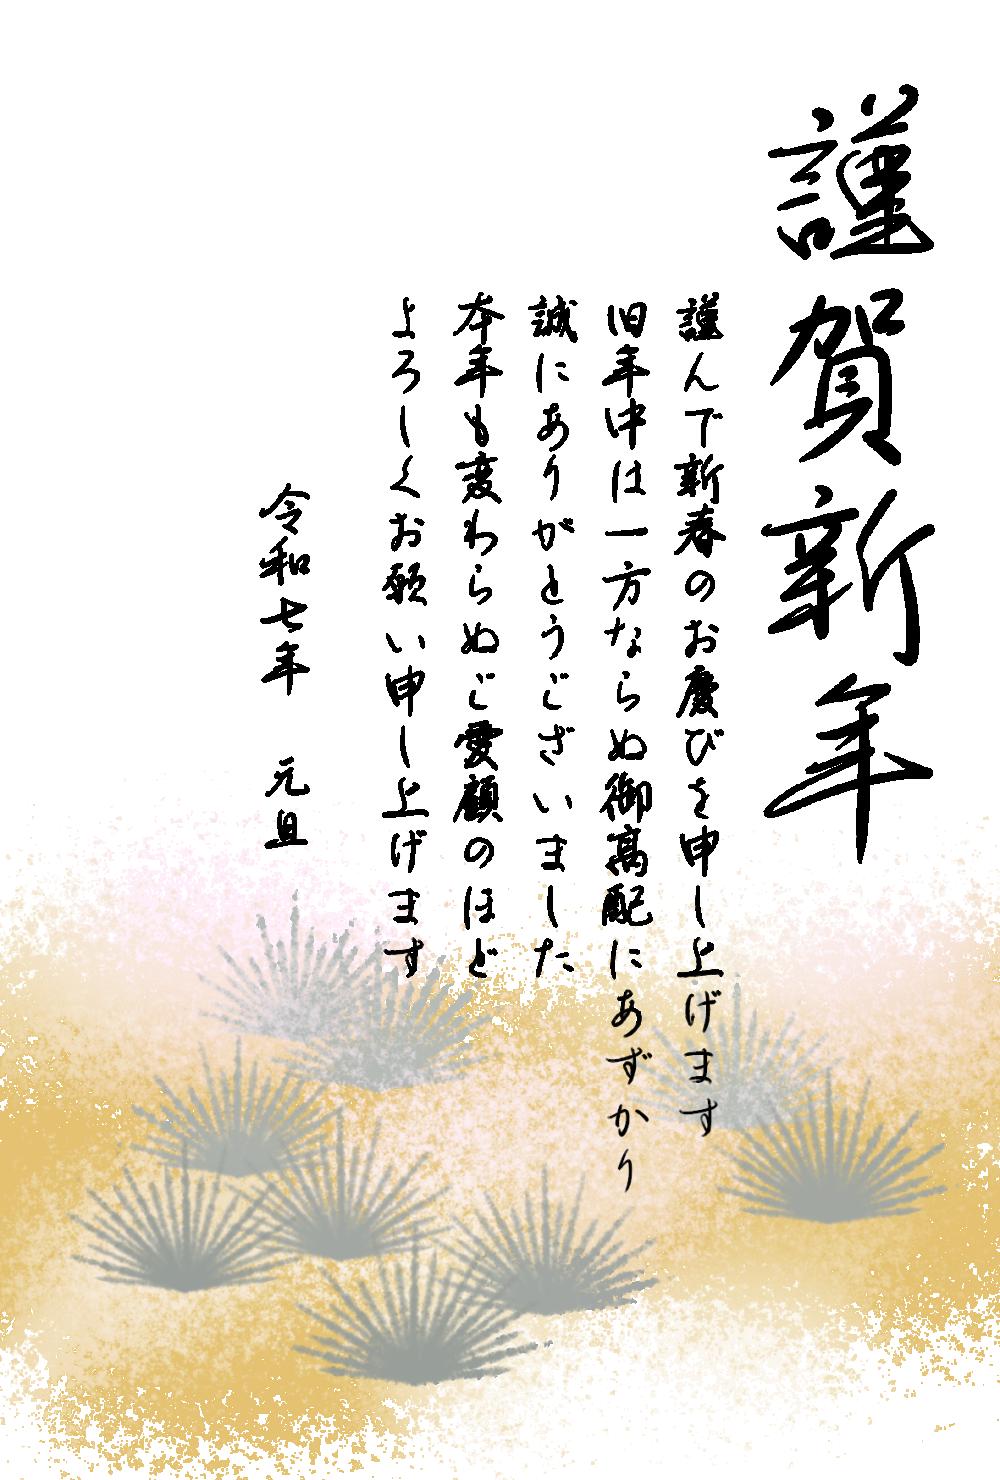 謹賀新年
謹んで新春のお慶びを申し上げます
旧年中は一方ならぬ御高配にあずかり
誠にありがとうございました
本年も変わらぬご愛顧のほど
よろしくお願い申し上げます
令和七年　元旦